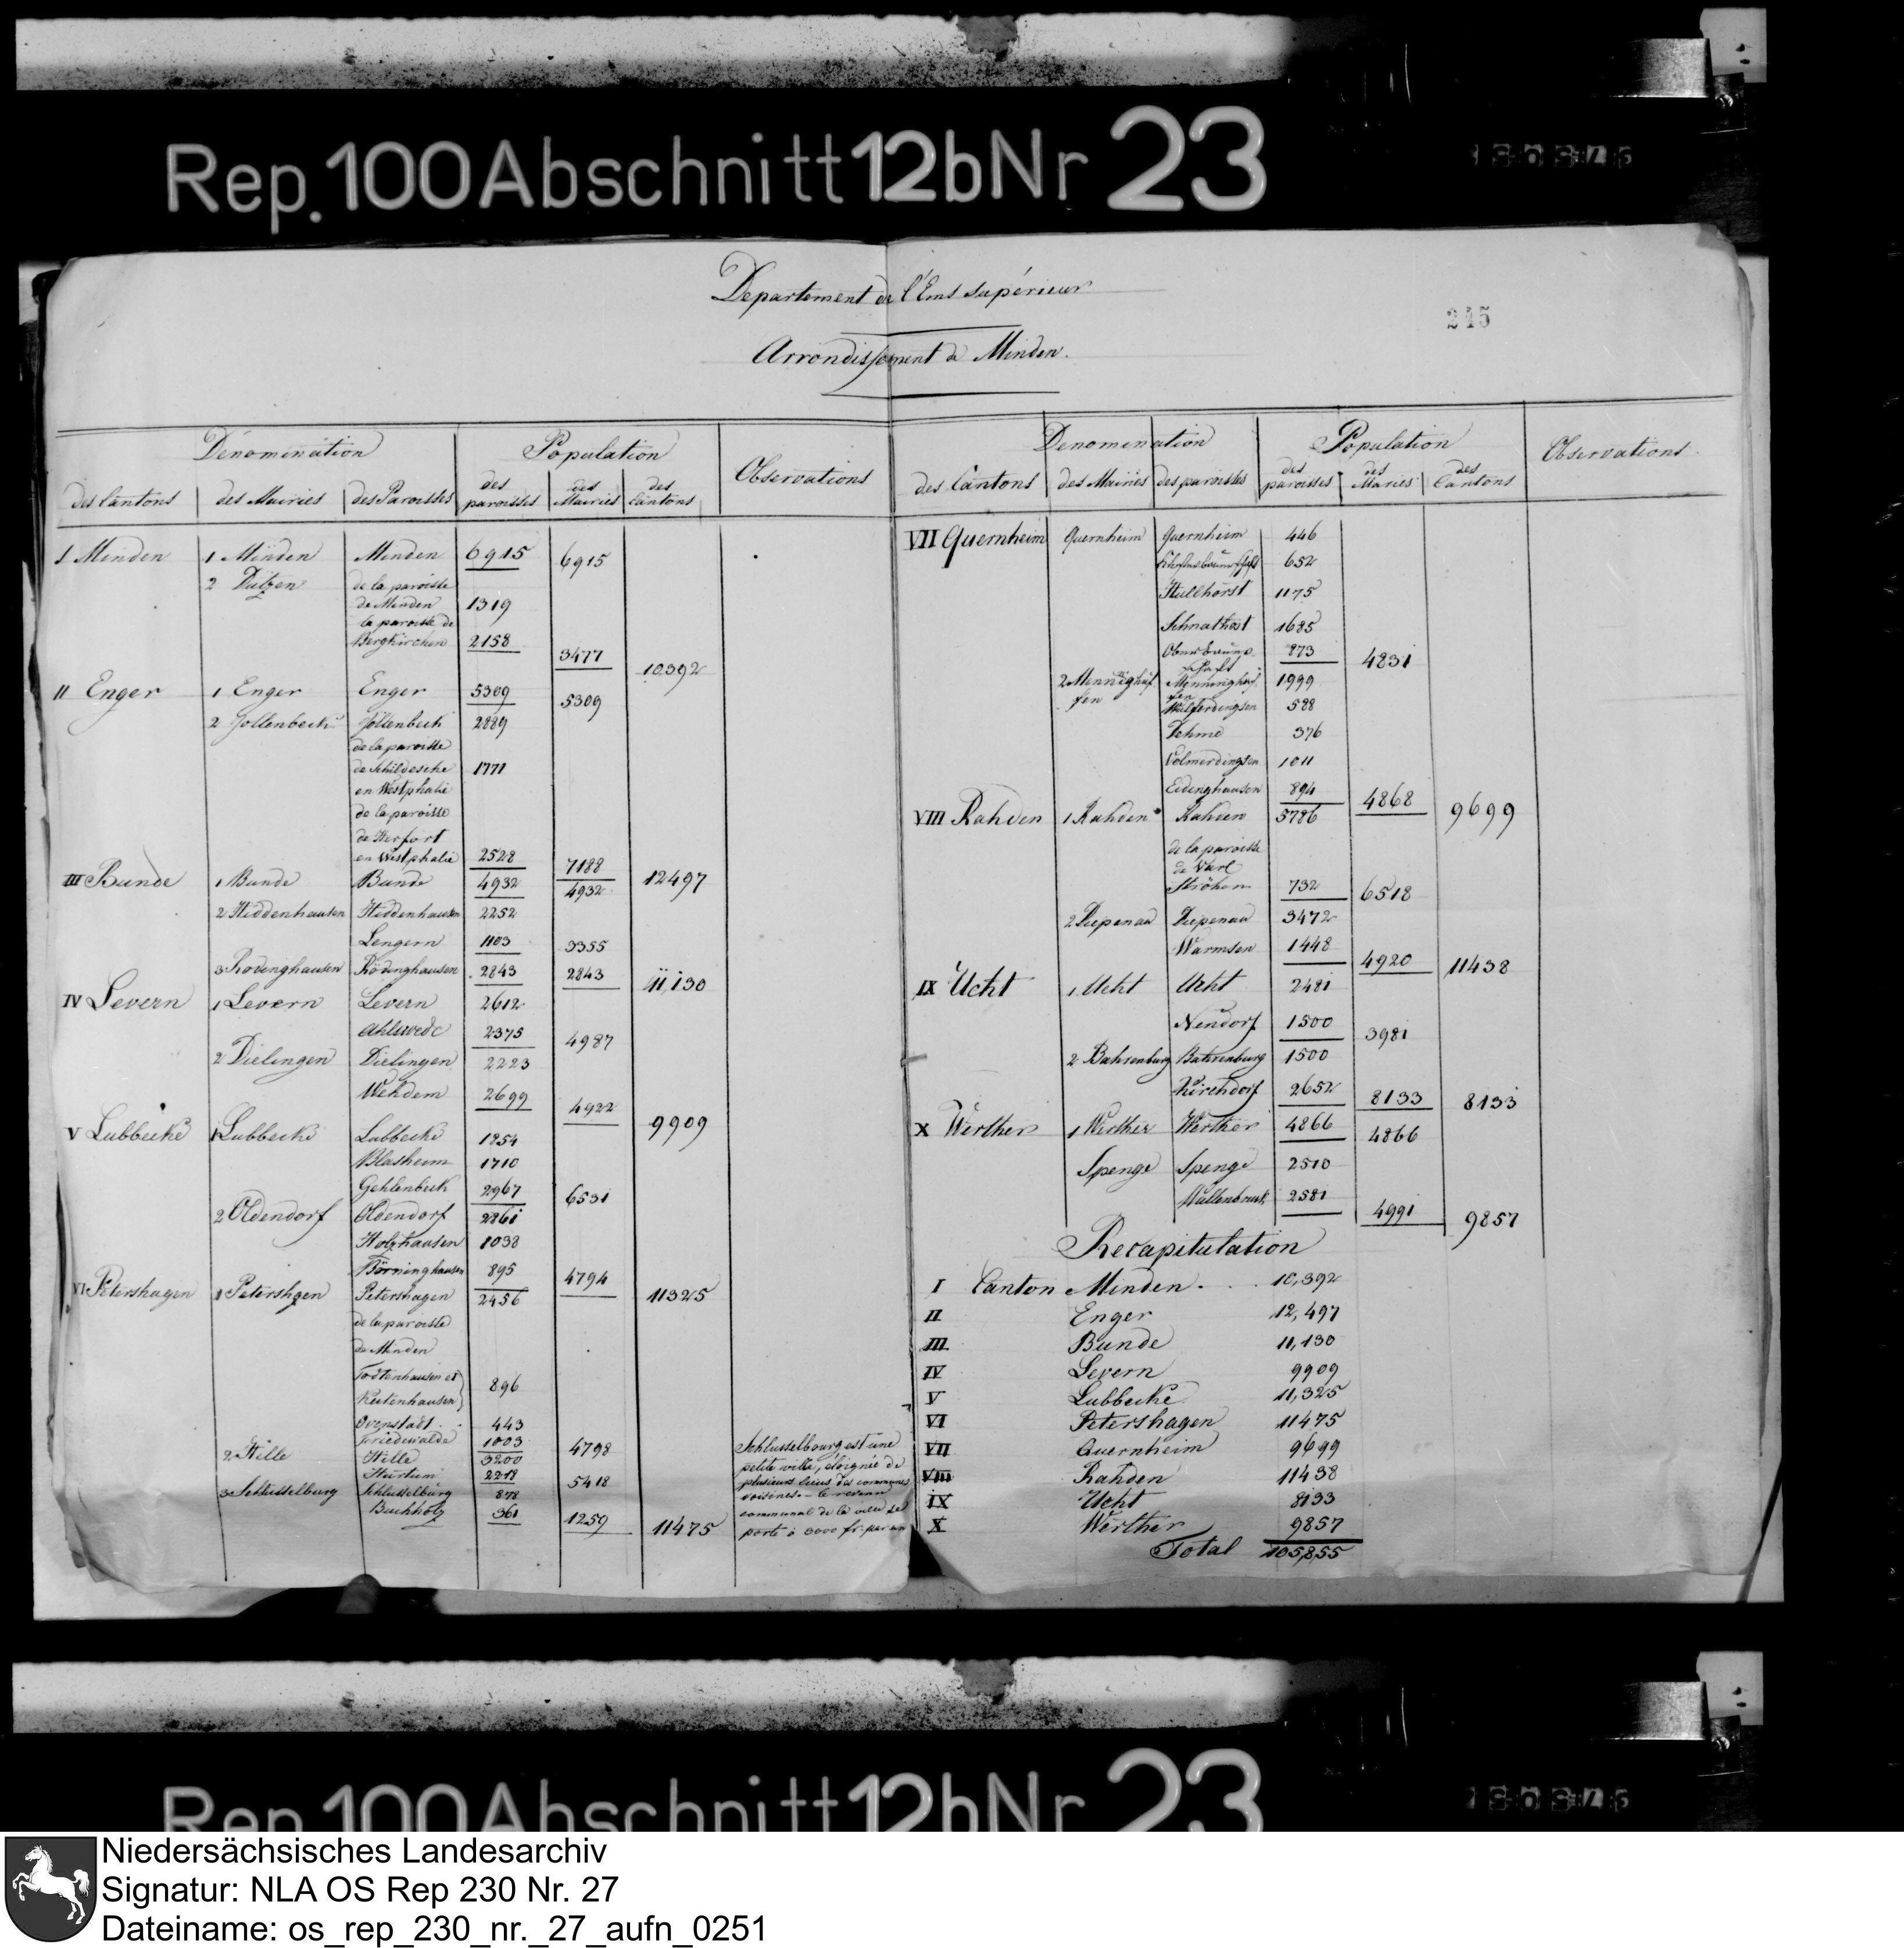 Rep. 100 Abschnitt 12b Nr 23
245
Departement de l'Ems supérieur
Arrondissement de Minden.
Dénomination Population Observations
des Cantons des Mairies des Paroisses des paroisses des Mairies des Cantons
I Minden 1 Minden Minden 6915 6915
2 Dützen de la paroisse
de Minden 1319
la paroisse de
Bergkirchen 2158
3477 10392
II Enger 1 Enger Enger 5309 5309
2 Jollenbeck Jöllenbeck 2889
de la paroisse
de Schildesche 1771
en Westphalie
de la paroisse
de Herfort
en Westphalie 2528 7188 12497
III Bunde 1 Bunde Bunde 4932 4932
2 Hiddenhausen Hiddenhausen 2252
Lengern 1103 3355
3 Rodinghausen Rödinghausen 2843 2843 11,130
IV Levern 1 Levern Levern 2612
Ahlswede 2375 4987
2 Dielingen Dielingen 2223
Wehdem 2699 4922 9909
V Lubbecke 1 Lubbecke Lubbecke 1854
Blasheim 1710
Gehlenbeck 2967 6531
2 Oldendorf Oldendorf 2861
Holzhausen 1038
Börninghausen 895 4794 11325
VI Petershagen 1 Petershgen Petershagen 2456
de la paroisse
de Minden
Todtenhausen et
Kutenhausen 896
Ovenstadt 443
Friedewalde 1003 4798
2 Hille Hille 3200
Hartum 2218 5418
3 Schlusselburg Schlusselburg 878
Buchholz 361 1259 11475
Schlusselbourg est une
petite ville, éloignée de
plusieurs lieues des communes
voisines. - le revenu
communal de la ville se
porte à 3000 fr. par an
Denomination Population Observations.
des Cantons des Mairies des paroisses des paroisses des Maries des Cantons
VII Quernheim Quernheim Quernheim 446
652
Hullhorst 1175
Schnathost 1685
873 4831
2 Mennighüf Menninghüf 1999
fen fen
Wulferdingsen 588
Dehme 376
Volmerdingsen 1011
Eidinghausen 894 4868 9699
VIII Rahden 1 Rahden Rahden 5786
de la paroisse
de Varl
Ströhen 732 6518
2 Diepenau Diepenau 3472
Warmsen 1448 4920 11438
IX Ucht 1 Ucht Ucht 2481
Nendorf 1500 3981
2 Bahrenburg Bahrenburg 1500
Kirchdorf 2652 8133 8133
X Werther 1 Werther Werther 4866 4866
Spenge Spenge 2510
Wallenbruck 2581 4991 9857
Recapitulation
I Canton Minden . . . 10,392
II Enger 12,497
III Bunde 11,130
IV Levern 9909
V Lubbecke 11,325
VI Petershagen 11475
VII Quernheim 9699
VIII Rahden 11438
IX Ucht 8133
X Werther 9857
Total 105,855
Rep. 100 Abschnitt 12b Nr 23
Niedersächsisches Landesarchiv
Signatur: NLA OS Rep 230 Nr. 27
Dateiname: os_rep_230_nr._27_aufn_0251